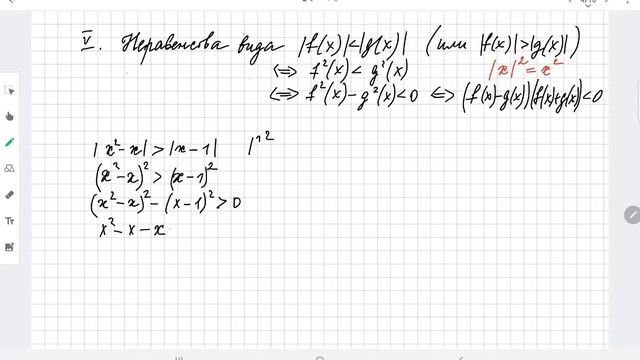 V. Неравенства вида |f(x)|<|g(x)| (или |f(x)|>|g(x)|)
⇔ f²(x) < g²(x) |x|²=x²
⇔ f²(x) - g²(x)<0 ⇔ (f(x)-g(x))(f(x)+g(x))<0
|x²-x| > |x-1| |↑²
(x²-x)² > (x-1)²
(x²-x)² - (x-1)² > 0
x²-x-x